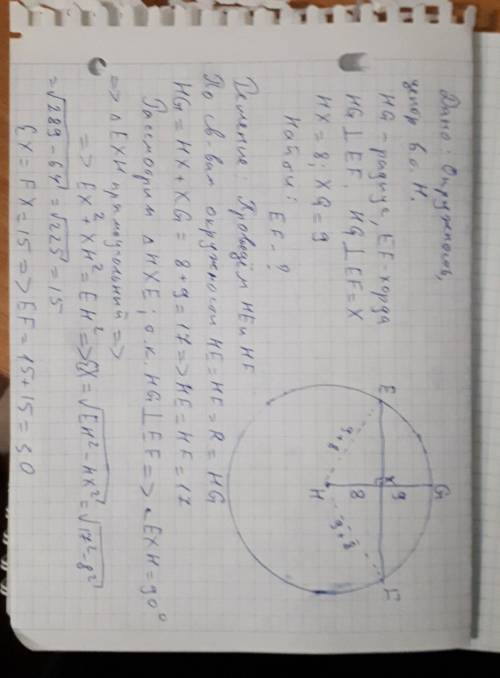 Дано: Окружность,
центр в о. H.
HG - радиус, EF - хорда
HG ⊥ EF. HG ⊥ EF = X
HX = 8; XG = 9
Найти: EF - ?
Решение: Проведём HE и HF
По св-вам окружности HE = HF = R = HG
HG = HX + XG = 8 + 9 = 17 => HE = HF = 17
Рассмотрим △HXE; т.к. HG ⊥ EF => ∠EXH = 90°
=> △EXH прямоугольный =>
=> EX² + XH² = EH² => EX = √EH² - HX² = √17² - 8²
= √289 - 64 = √225 = 15
EX = FX = 15 => EF = 15 + 15 = 30
G
E
X
F
9
8
9+8
9+8
H